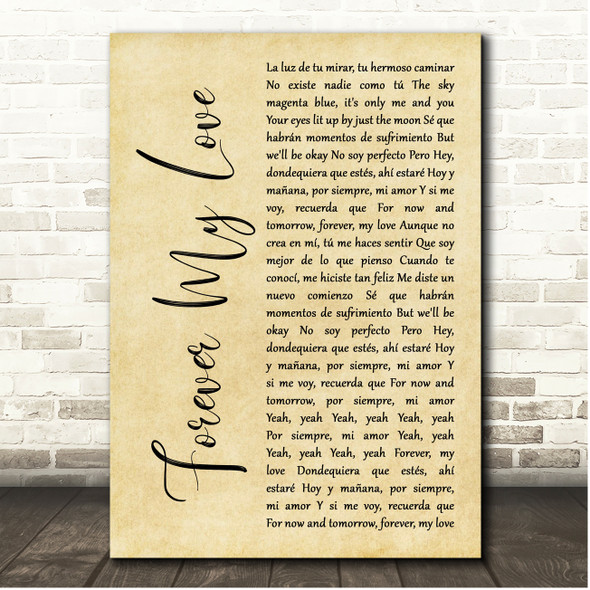 Forever My Love
La luz de tu mirar, tu hermoso caminar
No existe nadie como tú The sky
magenta blue, it's only me and you
Your eyes lit up by just the moon Sé que
habrán momentos de sufrimiento But
we'll be okay No soy perfecto Pero Hey,
dondequiera que estés, ahí estaré Hoy y
mañana, por siempre, mi amor Y si me
voy, recuerda que For now and
tomorrow, forever, my love Aunque no
crea en mí, tú me haces sentir Que soy
mejor de lo que pienso Cuando te
conocí, me hiciste tan feliz Me diste un
nuevo comienzo Sé que habrán
momentos de sufrimiento But we'll be
okay No soy perfecto Pero Hey,
dondequiera que estés, ahí estaré Hoy
y mañana, por siempre, mi amor Y
si me voy, recuerda que For now and
tomorrow, por siempre, mi amor
Yeah, yeah Yeah, yeah Yeah, yeah
Por siempre, mi amor Yeah, yeah
Yeah, yeah Yeah, yeah Forever, my
love Dondequiera que estés, ahí
estaré Hoy y mañana, por siempre,
mi amor Y si me voy, recuerda que
For now and tomorrow, forever, my love